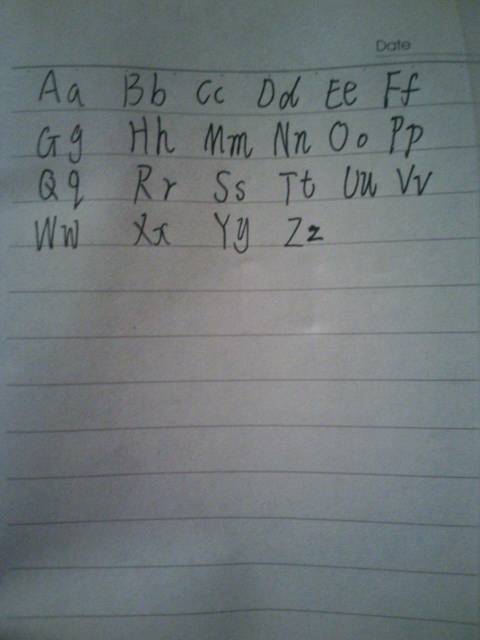 Date
Aa Bb Cc Dd Ee Ff
Gg Hh Mm Nn Oo Pp
Qq Rr Ss Tt Uu Vv
Ww Xx Yy Zz